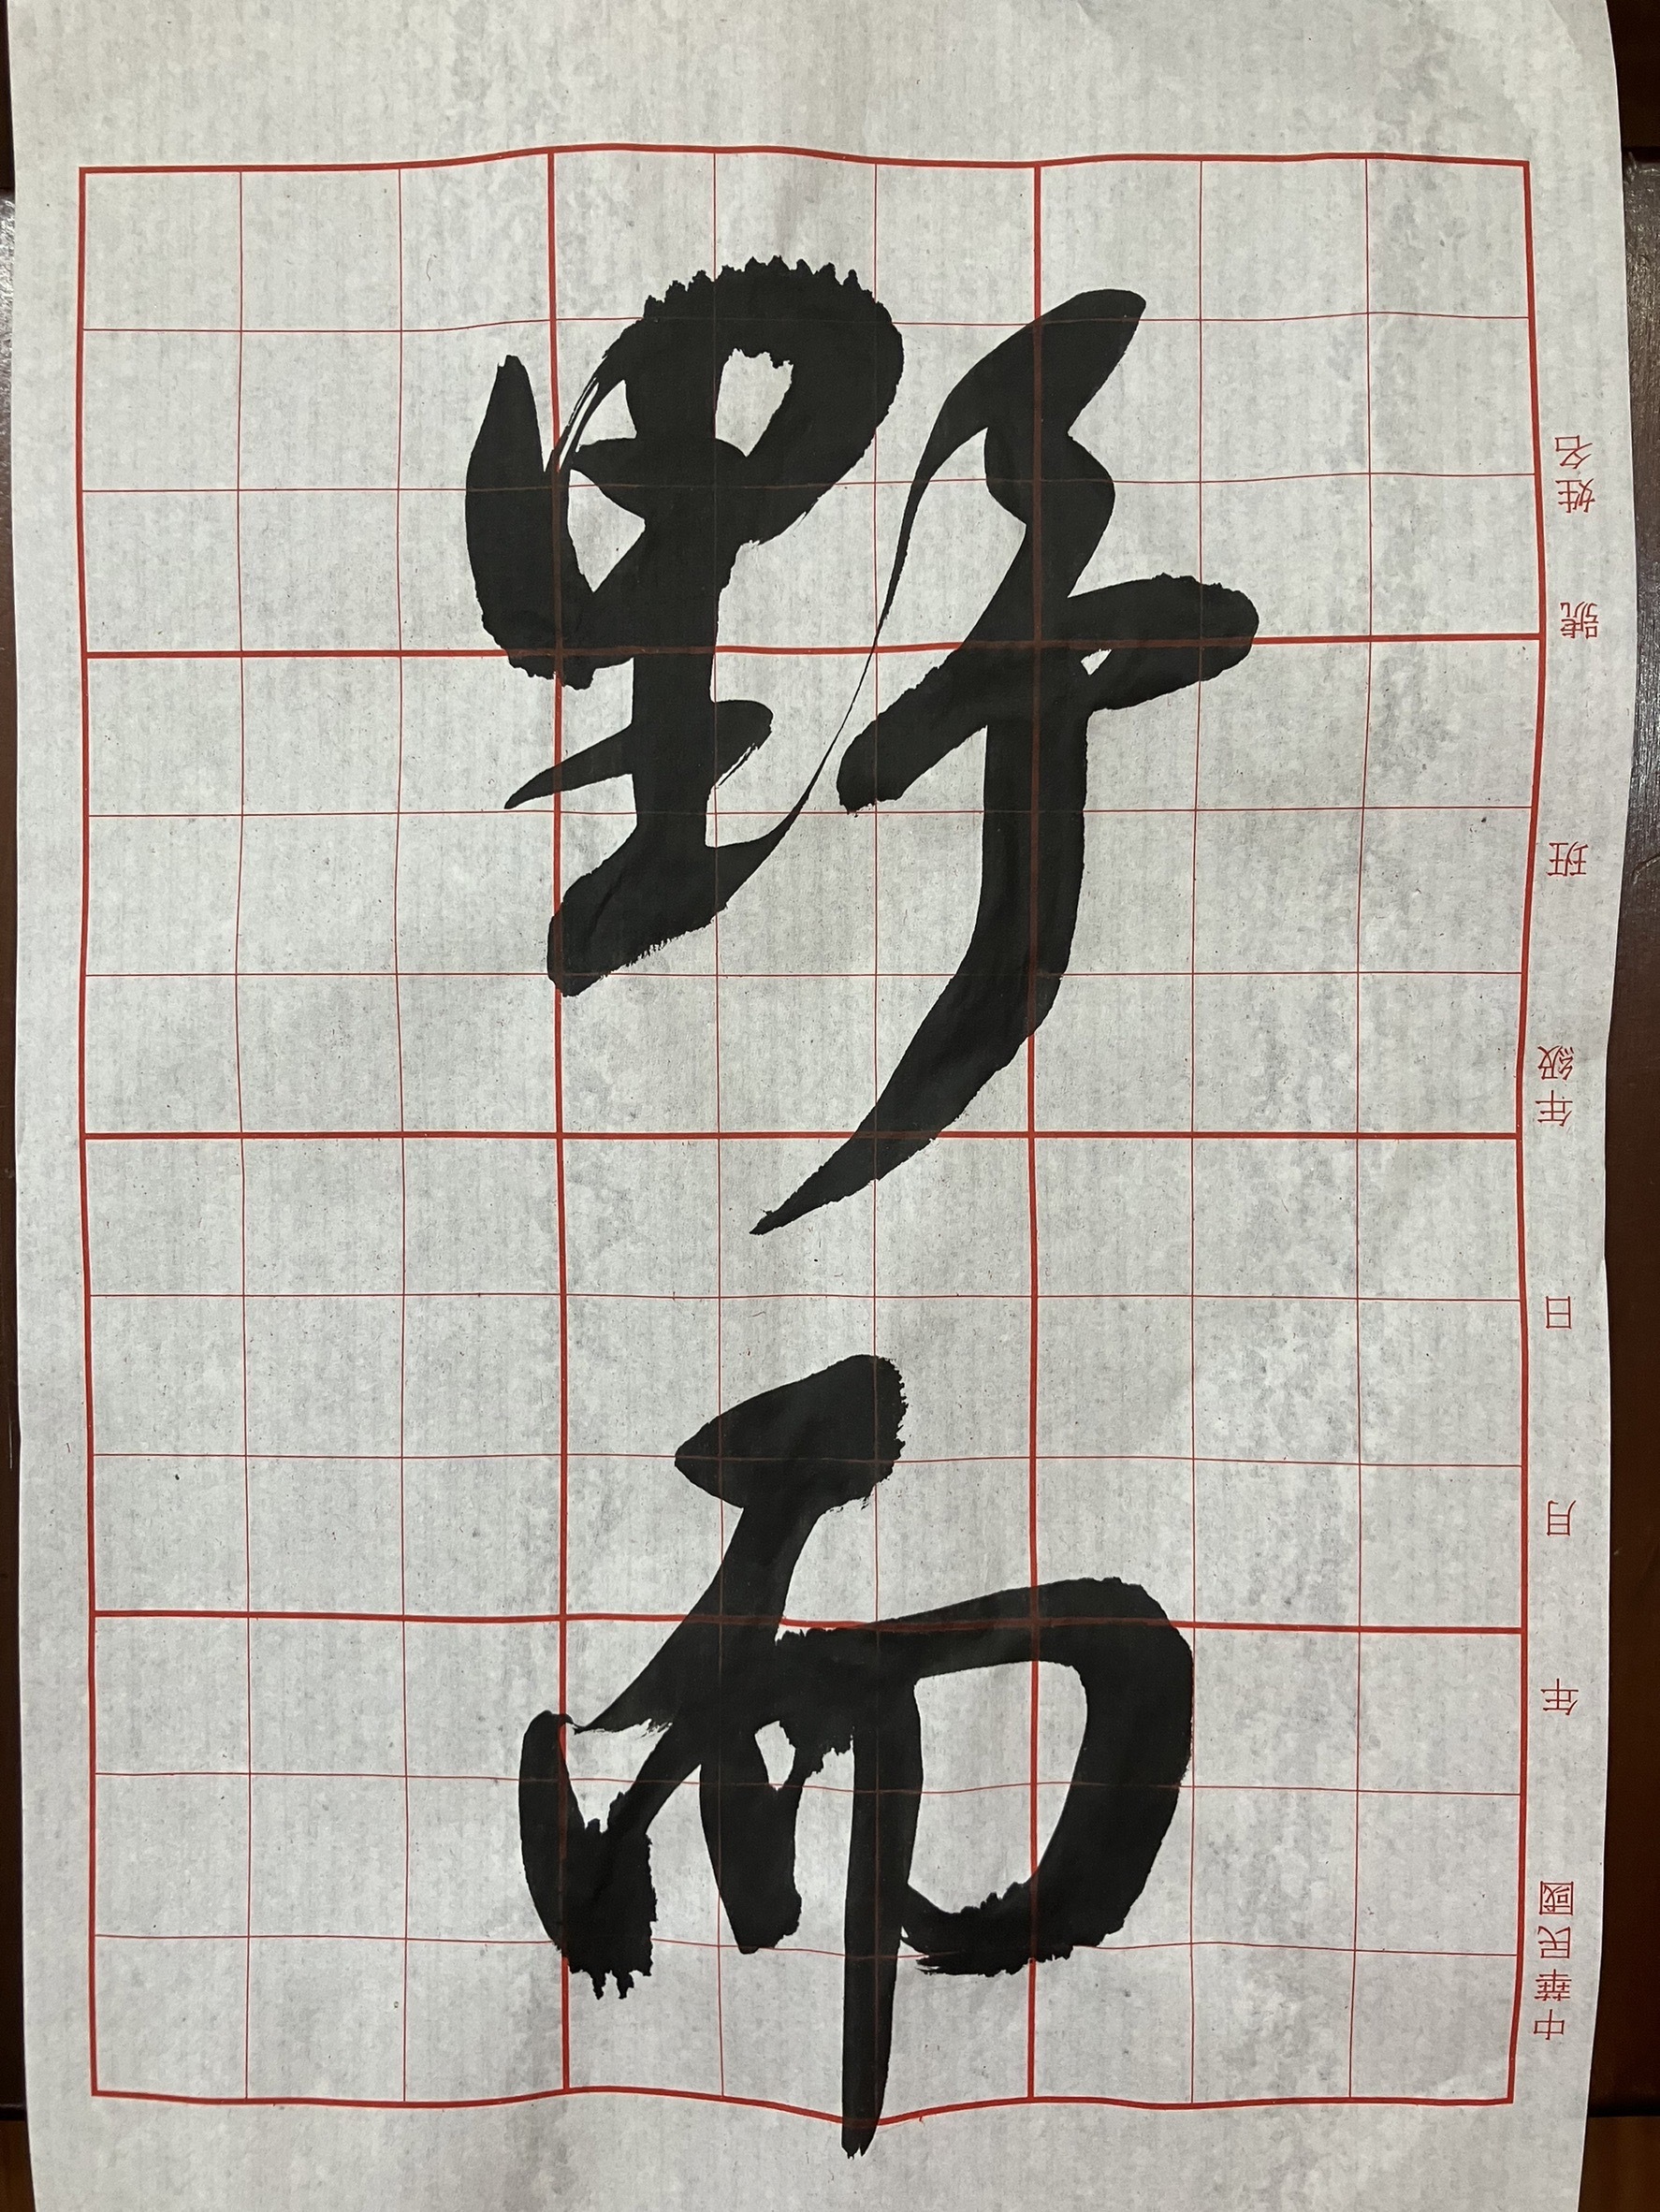 野而
中華民國 年 月 日 年級 班 號 姓名